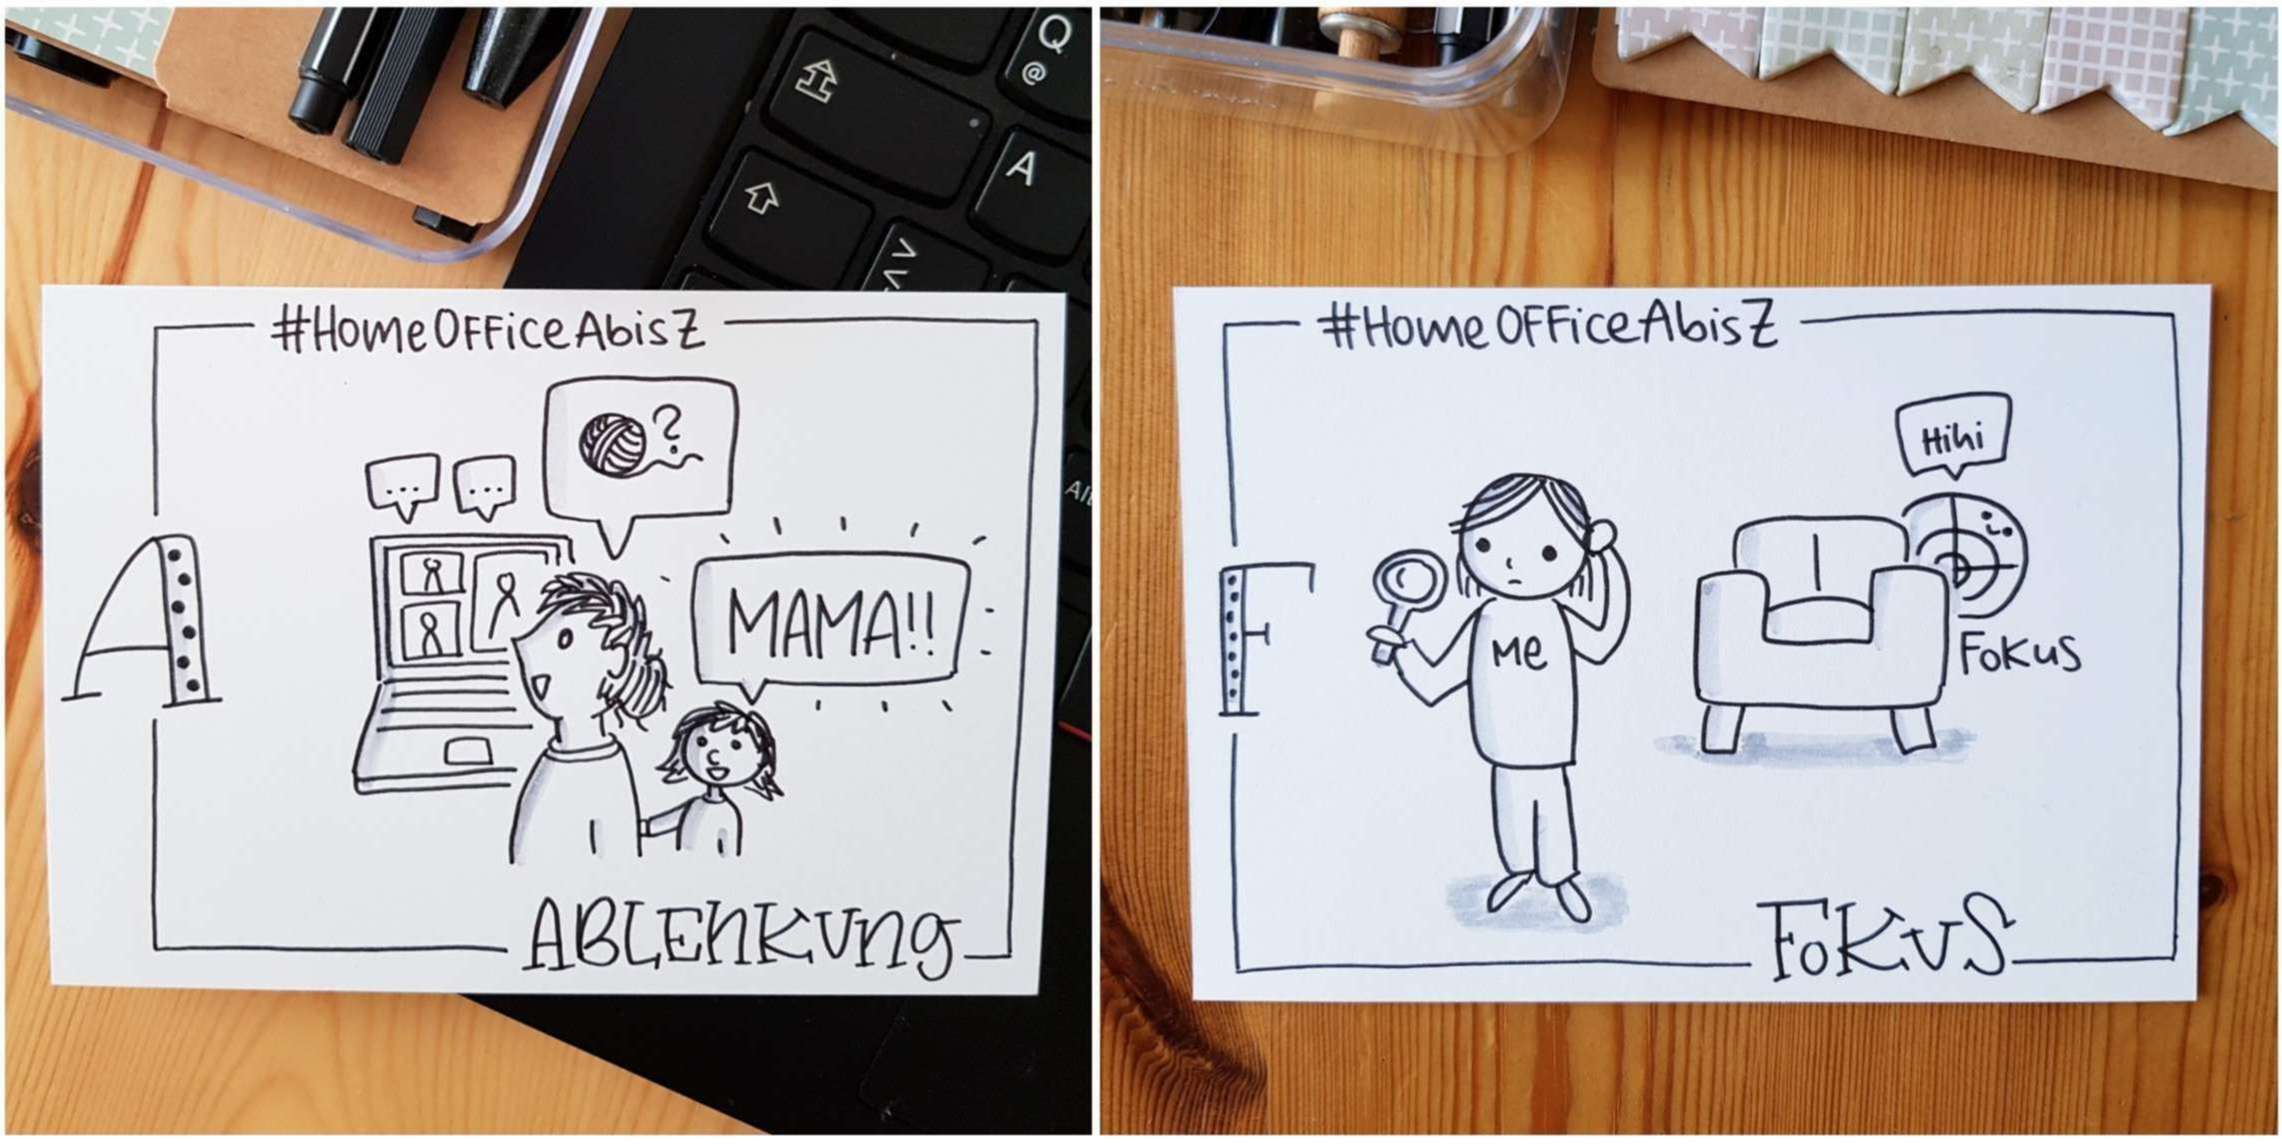 Q
@
A
Alt
#HomeOFFiceAbisZ
?
...
...
MAMA!!
A
ABLENKUNg
#HomeOFFiceAbisZ
Hihi
Me
F
Fokus
FoKuS